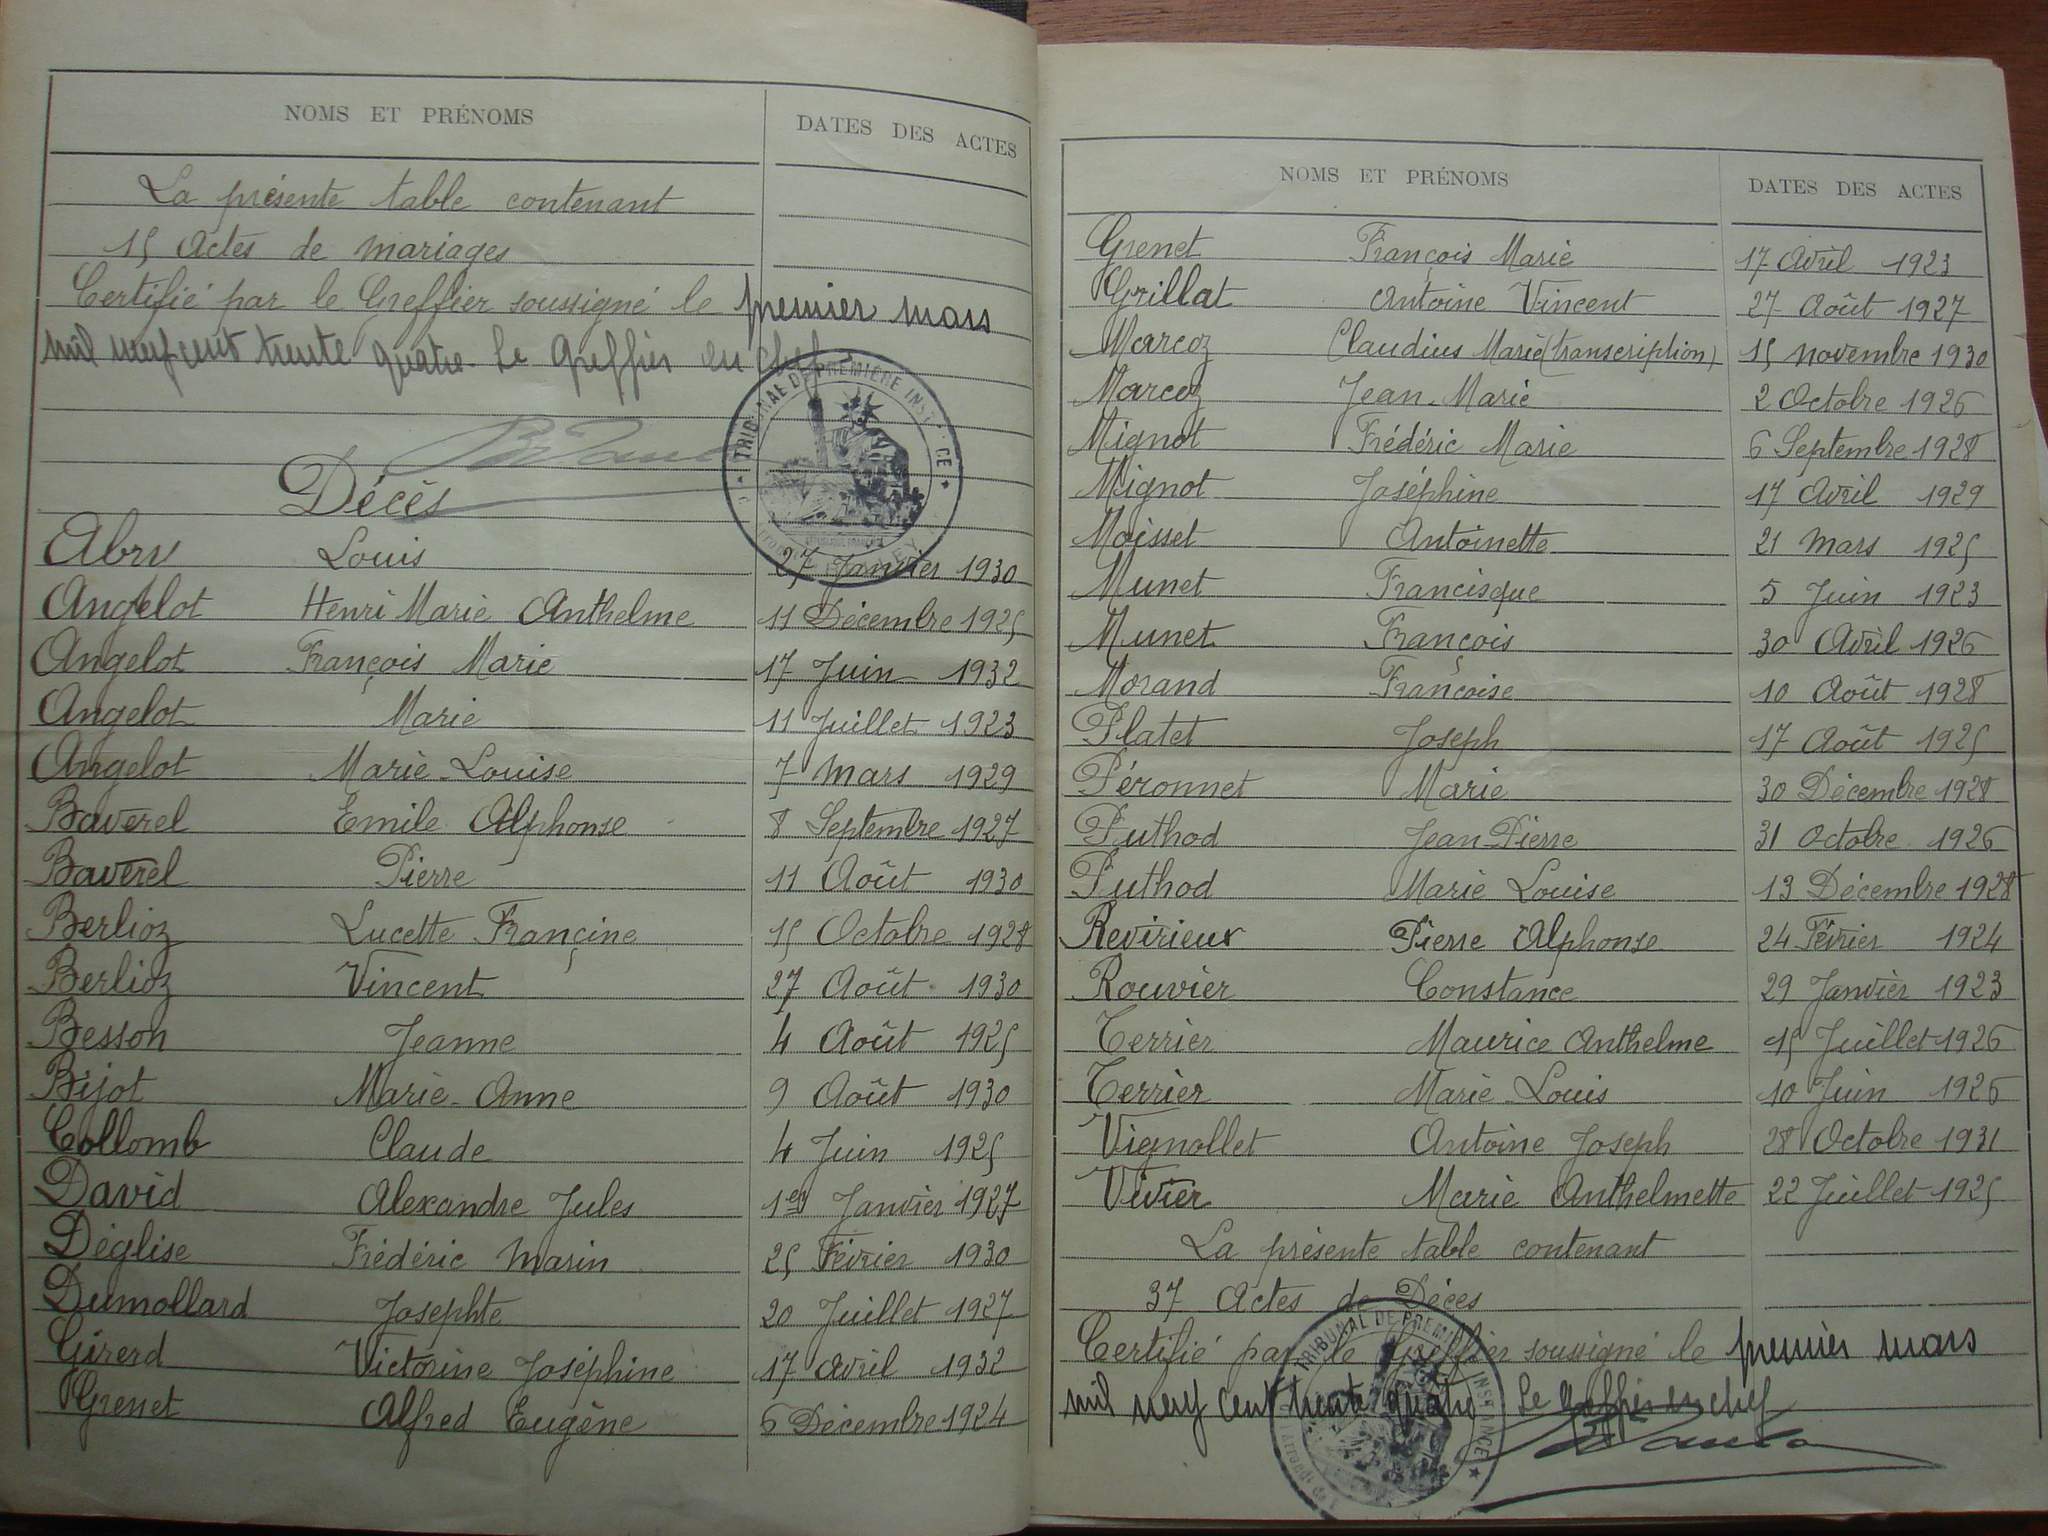 NOMS ET PRÉNOMS DATES DES ACTES
La présente table contenant
15 Actes de mariages
Certifié par le Greffier soussigné le premier mars
mil neuf cent trente quatre. Le Greffier en chef
TRIBUNAL DE PREMIÈRE INSTANCE
RÉPUBLIQUE FRANÇAISE
Décès
Abry Louis 27 Janvier 1930
Angelot Henri Marie Anthelme 11 Décembre 1925
Angelot François Marie 17 Juin 1932
Angelot Marie 11 Juillet 1923
Angelot Marie-Louise 7 mars 1929
Baverel Emile Alphonse 8 Septembre 1927
Baverel Pierre 11 Août 1930
Berlioz Lucette Françine 15 Octobre 1928
Berlioz Vincent 27 Août 1930
Besson Jeanne 4 Août 1925
Bijot Marie-Anne 9 Août 1930
Collomb Claude 4 Juin 1925
David Alexandre Jules 1er Janvier 1927
Déglise Frédéric Marin 25 Février 1930
Dumollard Josephte 20 Juillet 1927
Girerd Victorine Joséphine 17 Avril 1932
Grenet Alfred Eugène 6 Décembre 1924
NOMS ET PRÉNOMS DATES DES ACTES
Grenet François Marie 17 Avril 1923
Grillat Antoine Vincent 27 Août 1927
Marcoz Claudius Marie (transcription) 15 novembre 1930
Marcoz Jean-Marie 2 Octobre 1926
Mignot Frédéric Marie 6 Septembre 1928
Mignot Joséphine 17 Avril 1929
Moisset Antoinette 21 mars 1925
Munet Francisque 5 Juin 1923
Munet François 30 Avril 1926
Morand Françoise 10 Août 1928
Platet Joseph 17 Août 1925
Péronnet Marie 30 Décembre 1928
Puthod Jean-Pierre 31 Octobre 1926
Puthod Marie Louise 13 Décembre 1928
Revirieux Pierre Alphonse 24 Février 1924
Rouvier Constance 29 Janvier 1923
Terrier Maurice Anthelme 15 Juillet 1926
Terrier Marie-Louis 10 Juin 1926
Vignollet Antoine Joseph 28 Octobre 1931
Vivier Marie Anthelmette 22 Juillet 1925
La présente table contenant
37 Actes de Décès
Certifié par le Greffier soussigné le premier mars
mil neuf cent trente quatre Le Greffier en chef
TRIBUNAL DE PREMIÈRE INSTANCE